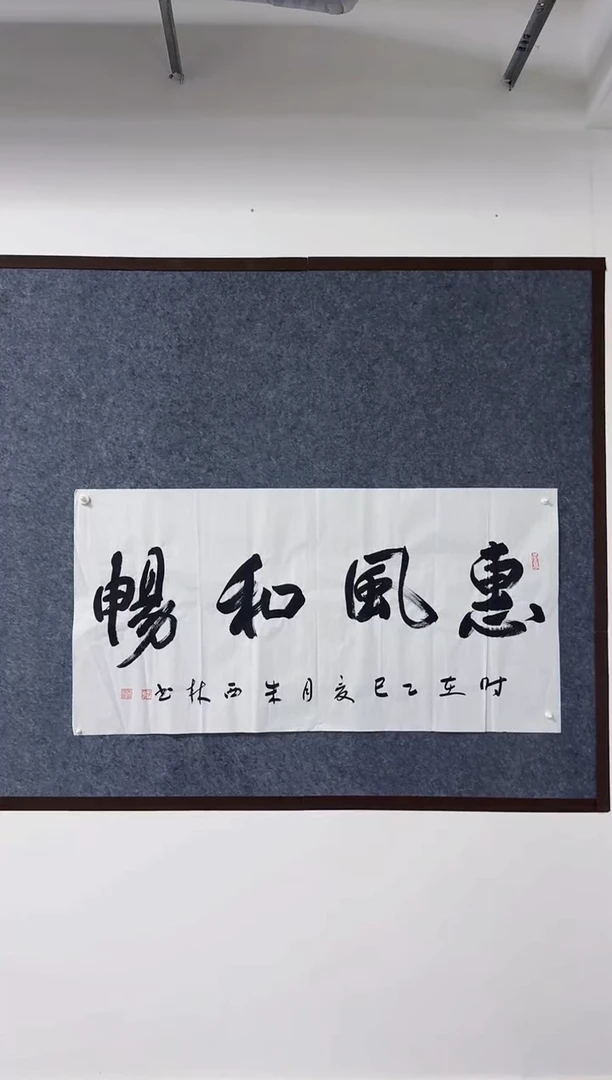 惠風和暢
时在乙巳夏月朱西林书